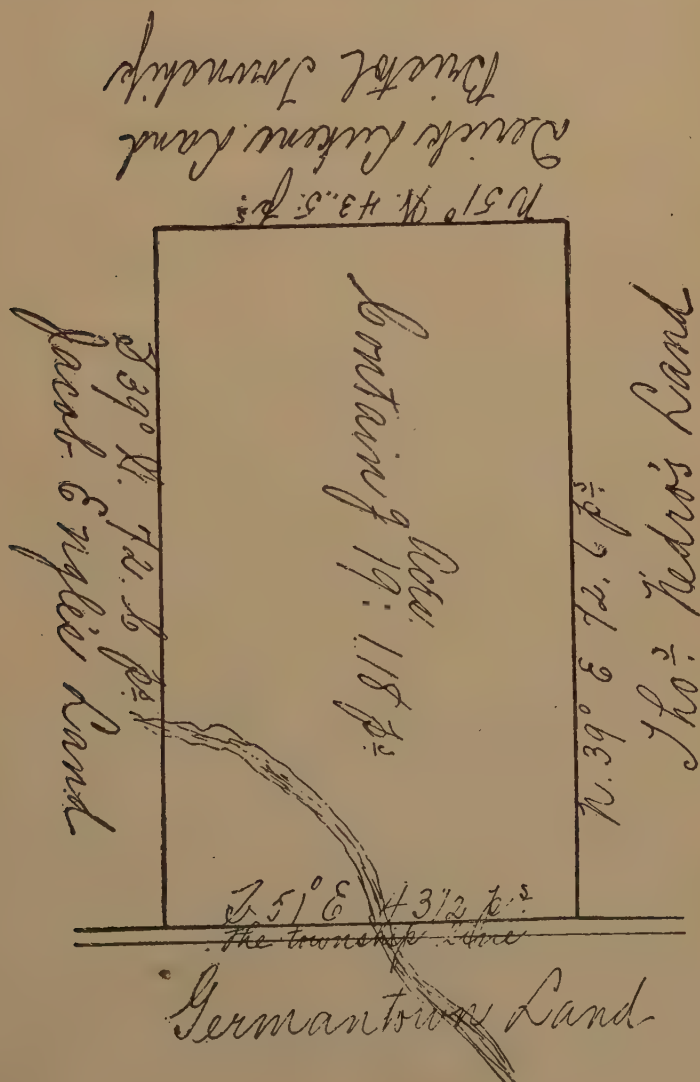 Bristol Township
Derick Lukens Land
N 51° W. 43..5. ps
S 39° W. 72. 6 ps
Jacob Engle's Land
Acrs.
Containg 19: 118 ps
N. 39° E 72. 6 ps
Thos. Kedro's Land
S 51° E 43 1/2 ps
The township Line
Germantown Land